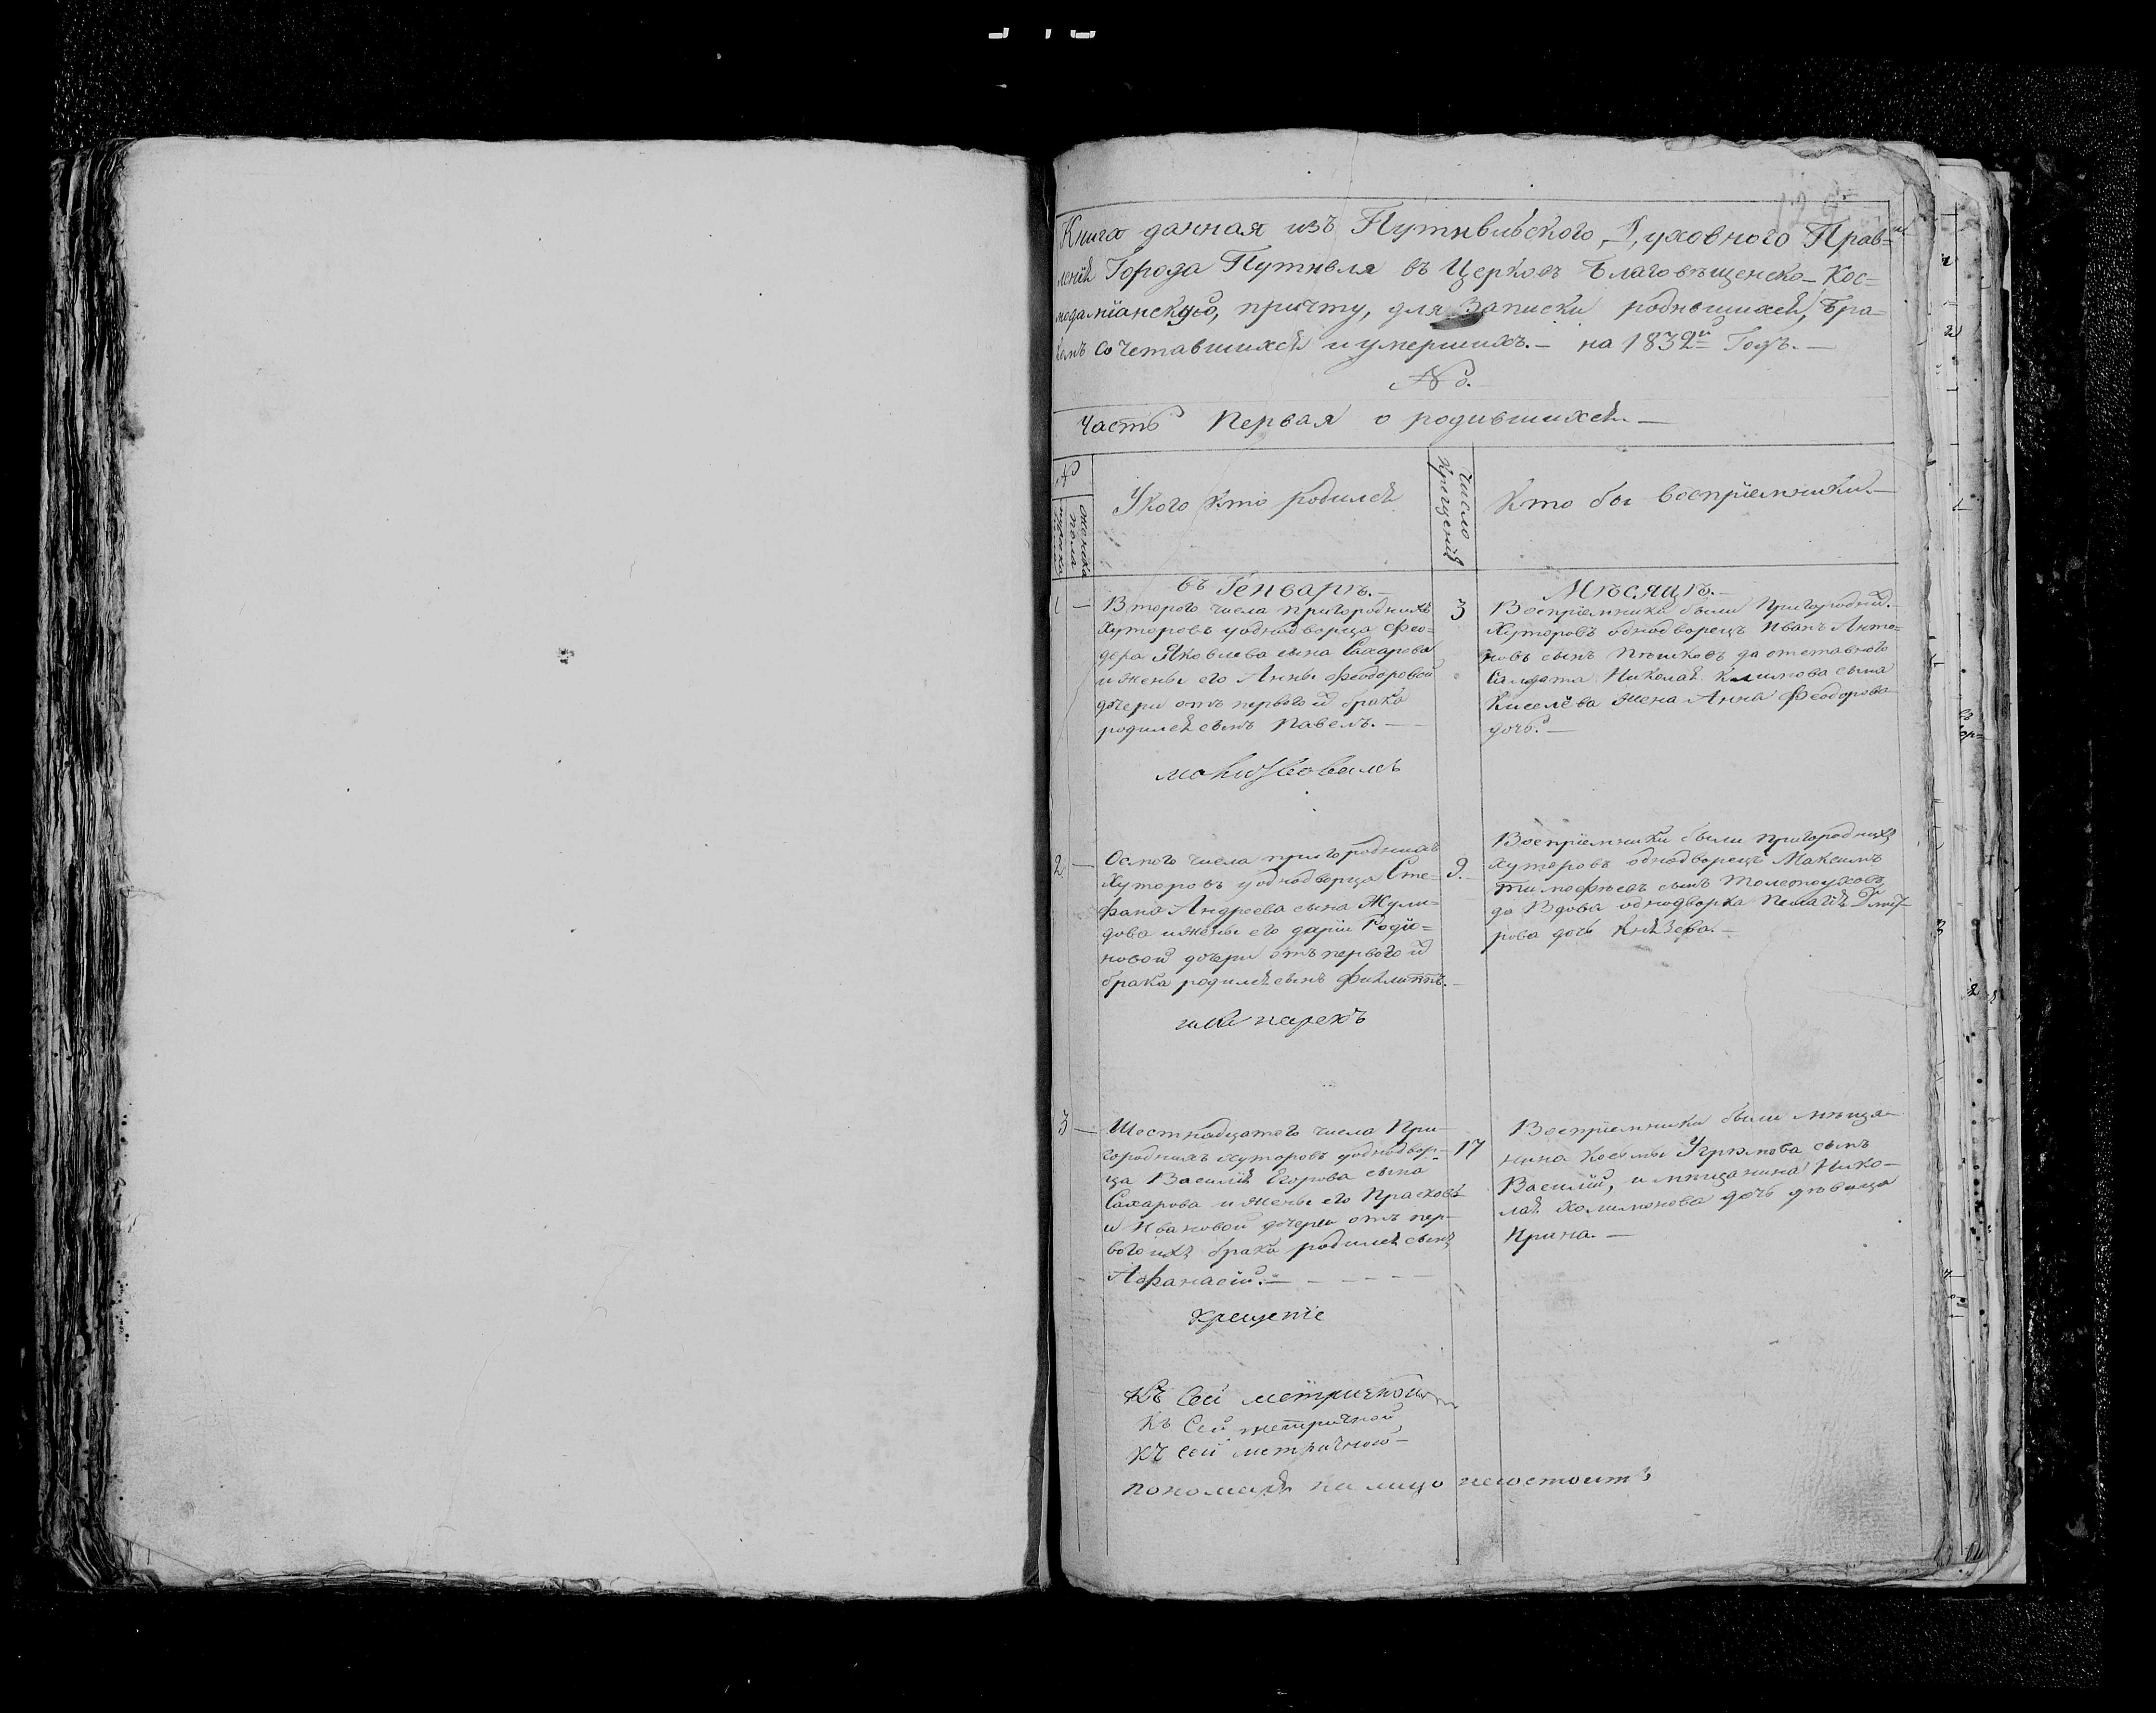 Книга данная изъ Путивльского Духовного Прав=
ленія Города Путивля въ Церковь Благовѣщенско-Кос=
модаміанскую, причту, для записки родившихся, бра=
комъ сочетавшихся и умершихъ.- на 1832й Годъ.-
№
Часть Первая о родившихся.-
№
мужска
женска
пола
У кого кто родился
Число
крещенія
Кто бы воспріемники.-
въ Генварѣ.-
Мѣсяцѣ.-
1 -
Второго числа пригородныхъ
хуторовъ у однодворца Фео=
дора Яковлева сына Сахарова
и жены его Анны Феодоровой
дочери отъ первого й брака
родился сынъ Павелъ.-
3
Воспріемники были Пригородны.
хуторовъ однодворецъ Иванъ Анто=
новъ сынъ Пѣшковъ да отставного
Салдата Николая сына
Киселёва жена Анна Феодорова
дочь.-
2 -
Осмого числа пригородныхъ
хуторовъ у однодворца Сте=
фана Андреева сына Жули=
дова и жены его Дарьи Родіо=
новой дочери отъ первого й
брака родился сынъ Филиппъ.-
9.-
Воспріемники были пригородныхъ
хуторовъ однодворецъ Максимъ
Тимофѣевъ сынъ
да Вдова однодворка Пелагія
дочь Князева.-
нареχъ
3 -
Шестнадцатого числа При-
городныхъ хуторовъ у однодвор-
ца Василія Егорова сына
Сахарова и жены его Прасковь-
и Ивановой дочери отъ пер-
вого ихъ брака родился сынъ
Афанасій.-
17
Воспріемники были мѣща-
нина Космы Угрюмова сынъ
Василій, и мѣщанина Нико-
лая Холимонова дочь дѣвица
Ирина.-
крещеніе
Къ сей метричной
Къ Сей метричной
Къ сей метричной-
пономаря на лицо несостоитъ